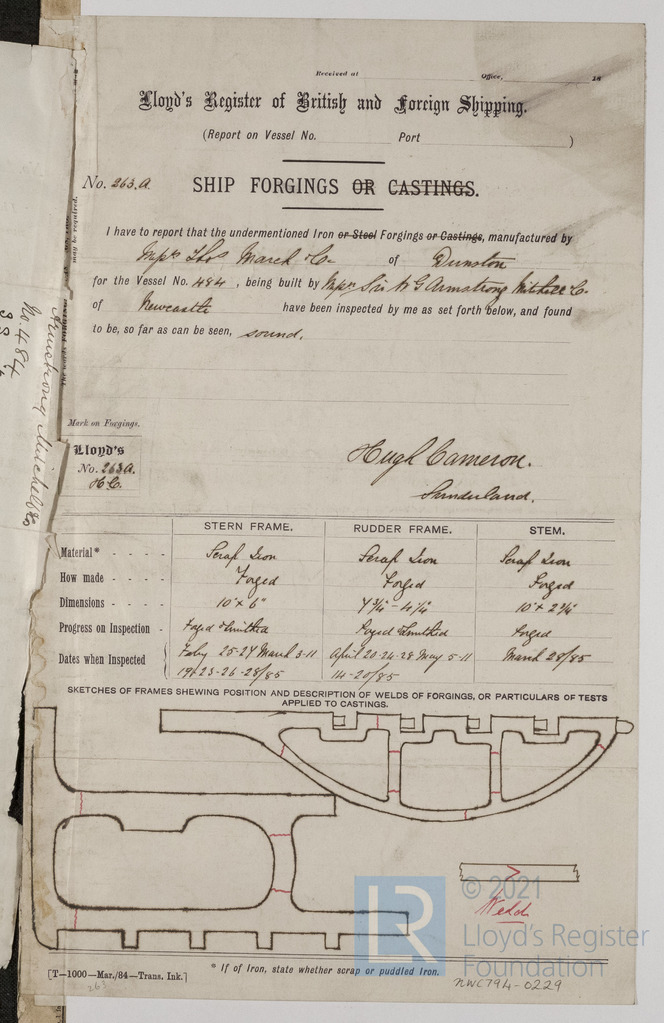 Received at Office, 18
Lloyd's Register of British and Foreign Shipping.
(Report on Vessel No. Port )
No. 263.A. SHIP FORGINGS OR CASTINGS.
I have to report that the undermentioned Iron or Steel Forgings or Castings, manufactured by
Messrs Thos March & Co of Dunston
for the Vessel No. 484 , being built by Messrs Sir W G Armstrong Mitchell & Co.
of Newcastle have been inspected by me as set forth below, and found
to be, so far as can be seen, sound.
may be required.
Armstrong Mitchell & Co
No. 484
Mark on Forgings.
Lloyd's
No. 263A.
H.C.
Hugh Cameron.
Sunderland.
STERN FRAME. RUDDER FRAME. STEM.
Material* - - - - Scrap Iron Scrap Iron Scrap Iron
How made - - - - Forged Forged Forged
Dimensions - - - - 10" x 6" 7¾" - 4¼" 10" x 2¾"
Progress on Inspection - Forged & Smithed Forged & Smithed Forged
Dates when Inspected Feby 25-27 March 3-11 April 20-24-28 May 5-11 March 28/85
19-23-26-28/85 14-20/85
SKETCHES OF FRAMES SHEWING POSITION AND DESCRIPTION OF WELDS OF FORGINGS, OR PARTICULARS OF TESTS
APPLIED TO CASTINGS.
Weld
LR © 2021
Lloyd's Register
Foundation
* If of Iron, state whether scrap or puddled Iron.
[T—1000—Mar./84—Trans. Ink.]
263
NWC794-0229